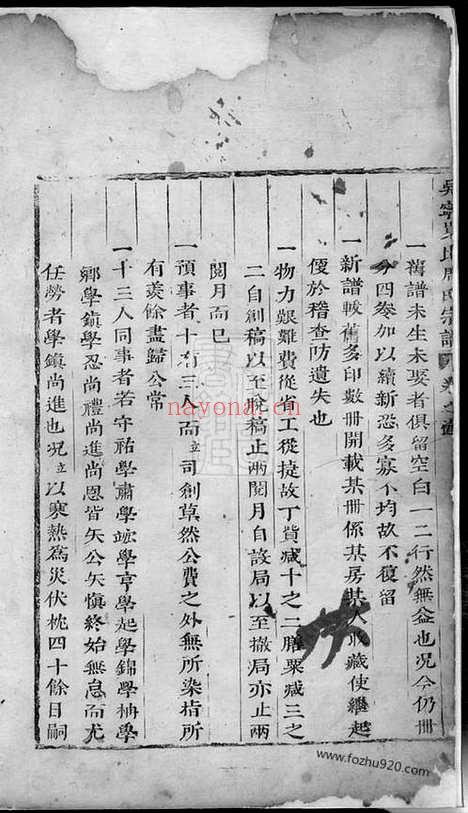 一舊譜未生未娶者俱留空白一二行然無益也况今仍冊
分四叅加以續新恐多寡不均故不復留
一新譜較舊多印數冊開載某冊係某房某人收藏使繼起
便於稽查防遺失也
一物力艱難費從省工從捷故丁貲减十之二膳粟减三之
二自創稿以至栓稿止兩閱月自設局以至撤局亦止兩
閱月而已
一預事者十有三人而立司創草然公費之外無所染指所
有羨餘盡歸公常
一十三人同事者若守祐學肅學跡學亨學起學錦學柟學
鄉學鎮學忍尚禮尚進尚恩皆矢公矢慎終始無怠而尤
任勞者學鎮尚進也况立以寒熱為災伏枕四十餘日嗣
氏宗譜
卷之
navona.cn
www.fozhu920.com